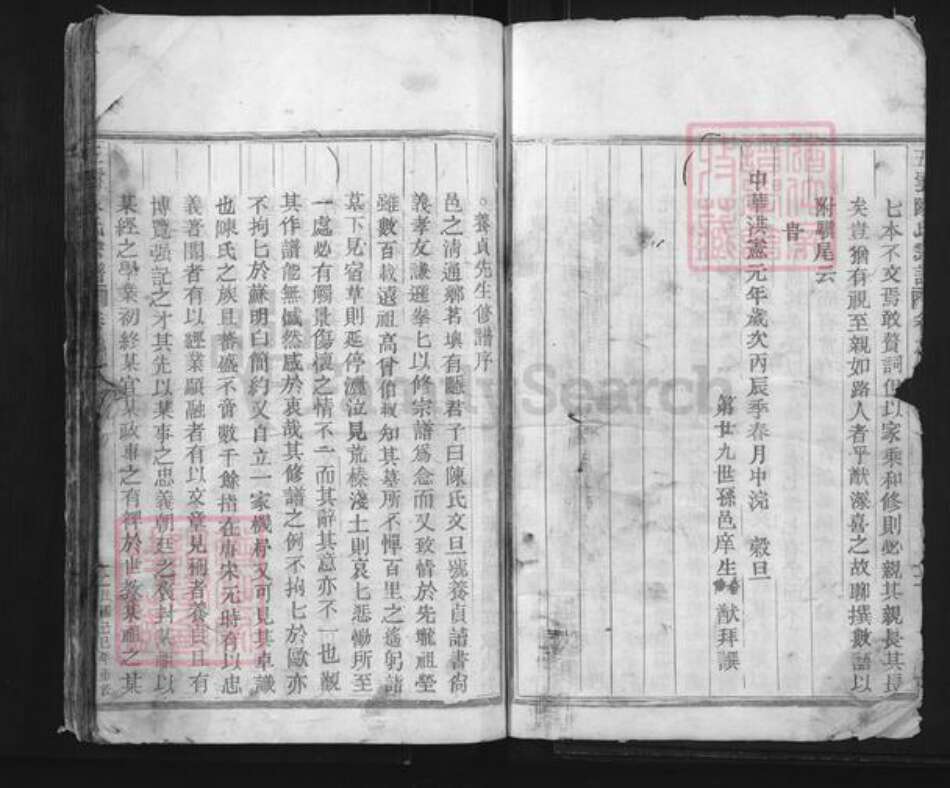 七本不文焉敢贊詞但以家乘和修則必親其親長其長
矣豈猶有視至親如路人者乎猷深喜之故聊撰數語以
附驥尾云
旹
中華洪憲元年歲次丙辰季春月中浣 穀旦
第廿九世孫邑庠生 猷拜譔
養貞先生修譜序
邑之清通鄉茗墺有隱君子曰陳氏文旦號養貞讀書尚
義孝友謙遜拳七以修宗譜爲念而又致情於先壠祖塋
雖數百載遠祖高曾伯叔知其墓所不憚百里之遙躬詣
墓下見宿草則延停灑泣見荒榛淺土則哀七悲慟所至
一處必有觸景傷懷之情不二而其辭其意亦不一也觀
其作譜能無慽然感於衷哉其修譜之例不拘七於歐亦
不拘七於蘇明白簡約又自立一家機杼又可見其卓識
也陳氏之族且蕃盛不啻數千餘指在唐宋元時有以忠
義著聞者有以經業顯融者有以文章見稱者養貞且有
博覽强記之才其先以某事之忠義朝廷之褒封某詔以
某經之學業初終某官某政事之有裨於世教某祖之某
FamilySearch